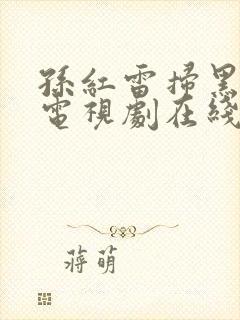 孫紅雷掃黑
電視劇在綫
蔣萌